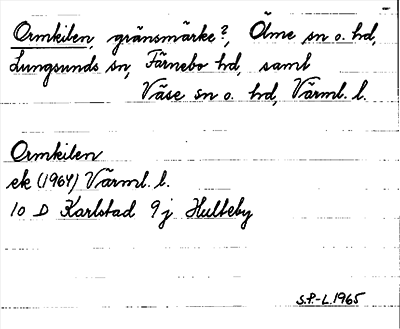 Ormkilen, gränsmärke?, Ölme sn o. hd,
Lungsunds sn, Färnebo hd, samt
Väse sn o. hd, Värml. l.
Ormkilen
ek (1964) Värml. l.
10 D Karlstad 9j Hulteby
S.P.-L. 1965